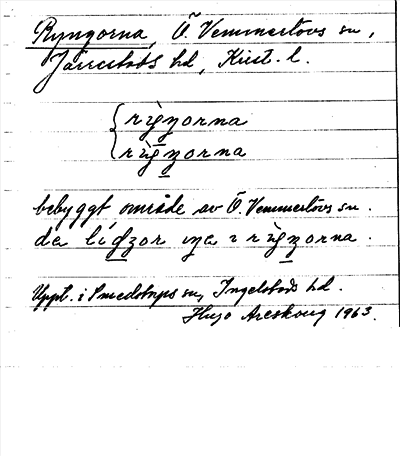 Ryngorna, Ö. Vemmerlövs sn,
Järrestads hd, Krist. l.
rìŋorna
rìŋorna
bebyggt område av Ö. Vemmerlövs sn.
Uppt. i Smedstorps sn, Ingelstads hd.
Hugo Areskoug 1963.